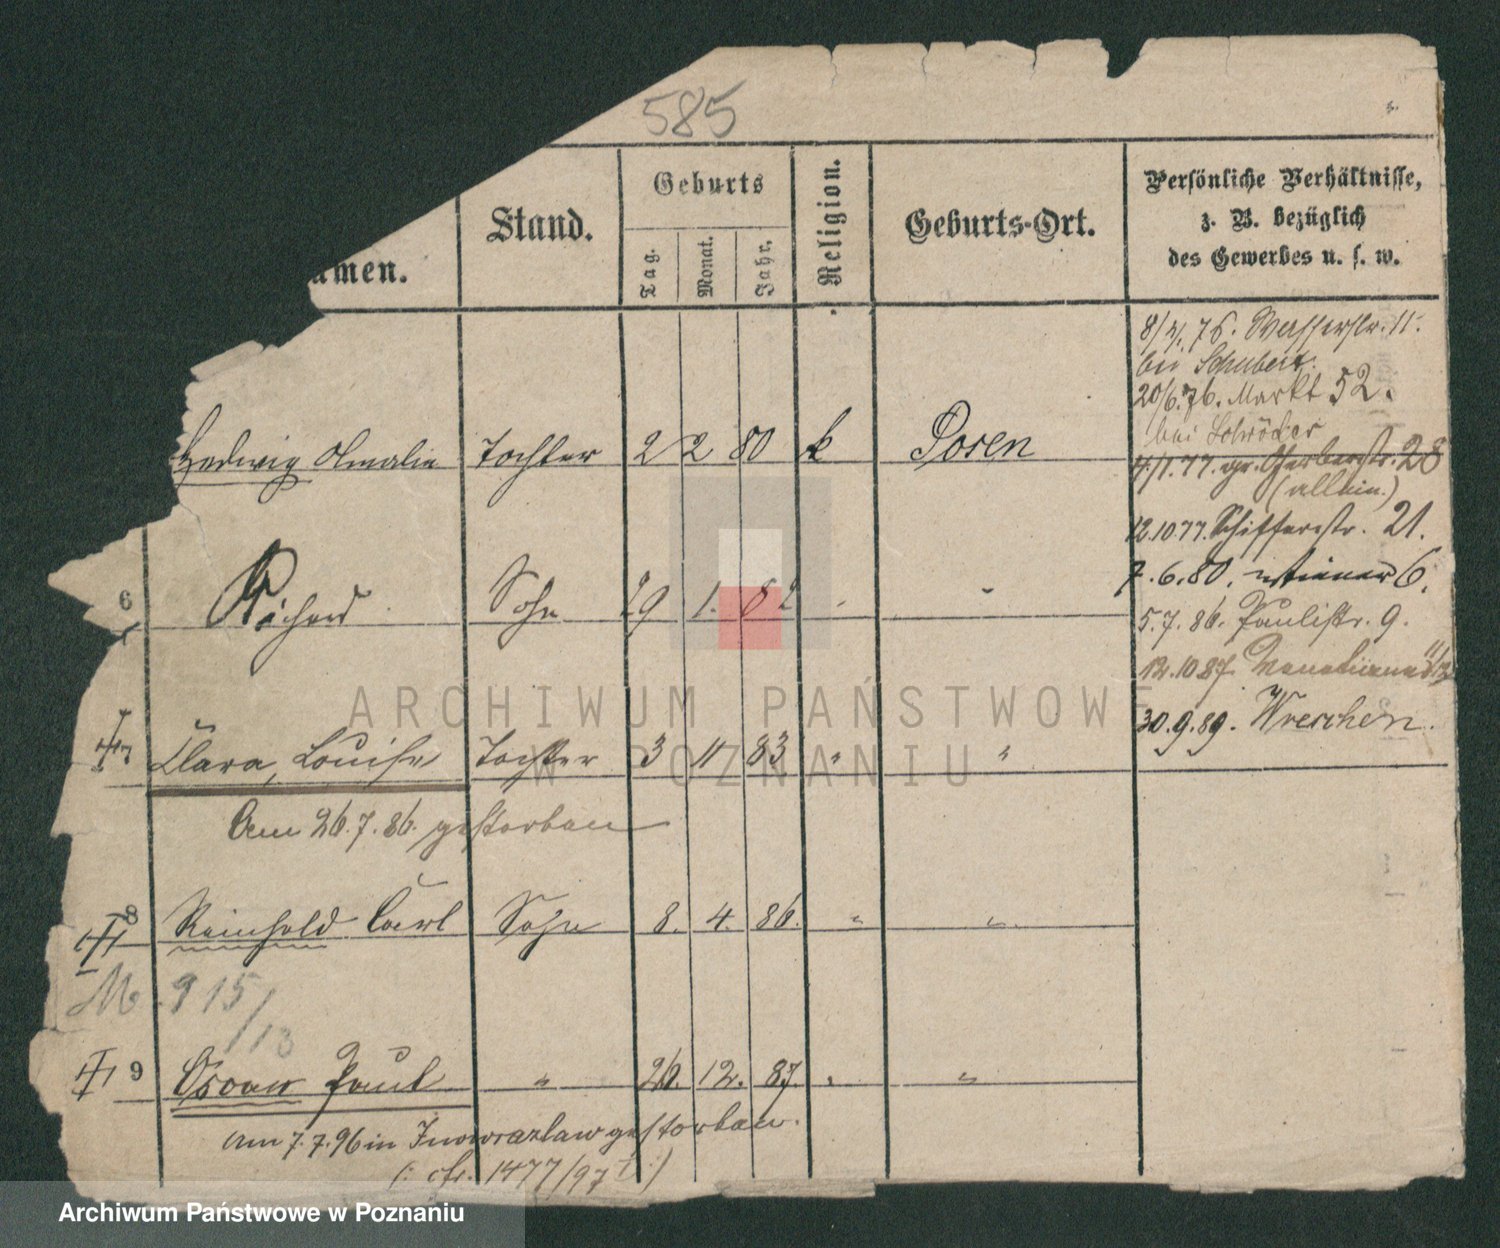 585
amen.
Stand.
Geburts
Tag.
Monat.
Jahr.
Religion.
Geburts-Ort.
Persönliche Verhältnisse,
z. B. bezüglich
des Gewerbes u. s. w.
8/2/. 76. Wasserstr. 11.
bei Schubert.
20/6.76. Markt 52.
bei Schröder
Hedwig Amalie Tochter 2 2 80 k Posen
4/1.77. gr. Gerberstr. 28
(allein.)
12.10.77. Schifferstr. 21.
7.6.80. 6.
6 Richard Sohn 29 1. 82 " "
5.7.86. Paulistr. 9.
12.10.87.
30.9.89. Wreschen.
7 Clara, Louise Tochter 3 11 83 " "
Am 26.7.86. gestorben
8 Reinhold Carl Sohn 8. 4. 86. " "
M 915/13
9 Oscar Paul " 26. 12. 87. " "
am 7.7.96 in Inowrazlaw gestorben.
(: cfr. 1477/97 :)
ARCHIWUM PAŃSTWOWE
W POZNANIU
Archiwum Państwowe w Poznaniu